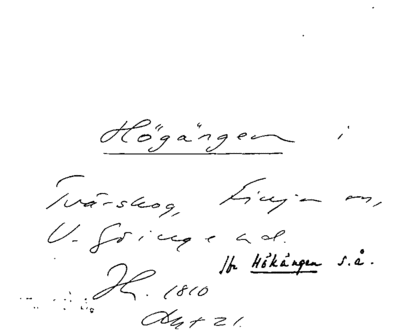 Högängen i
Tvärskog, Finja sn,
V. Göinge hd.
Jfr Hökängen s.å.
1810
Akt 21.